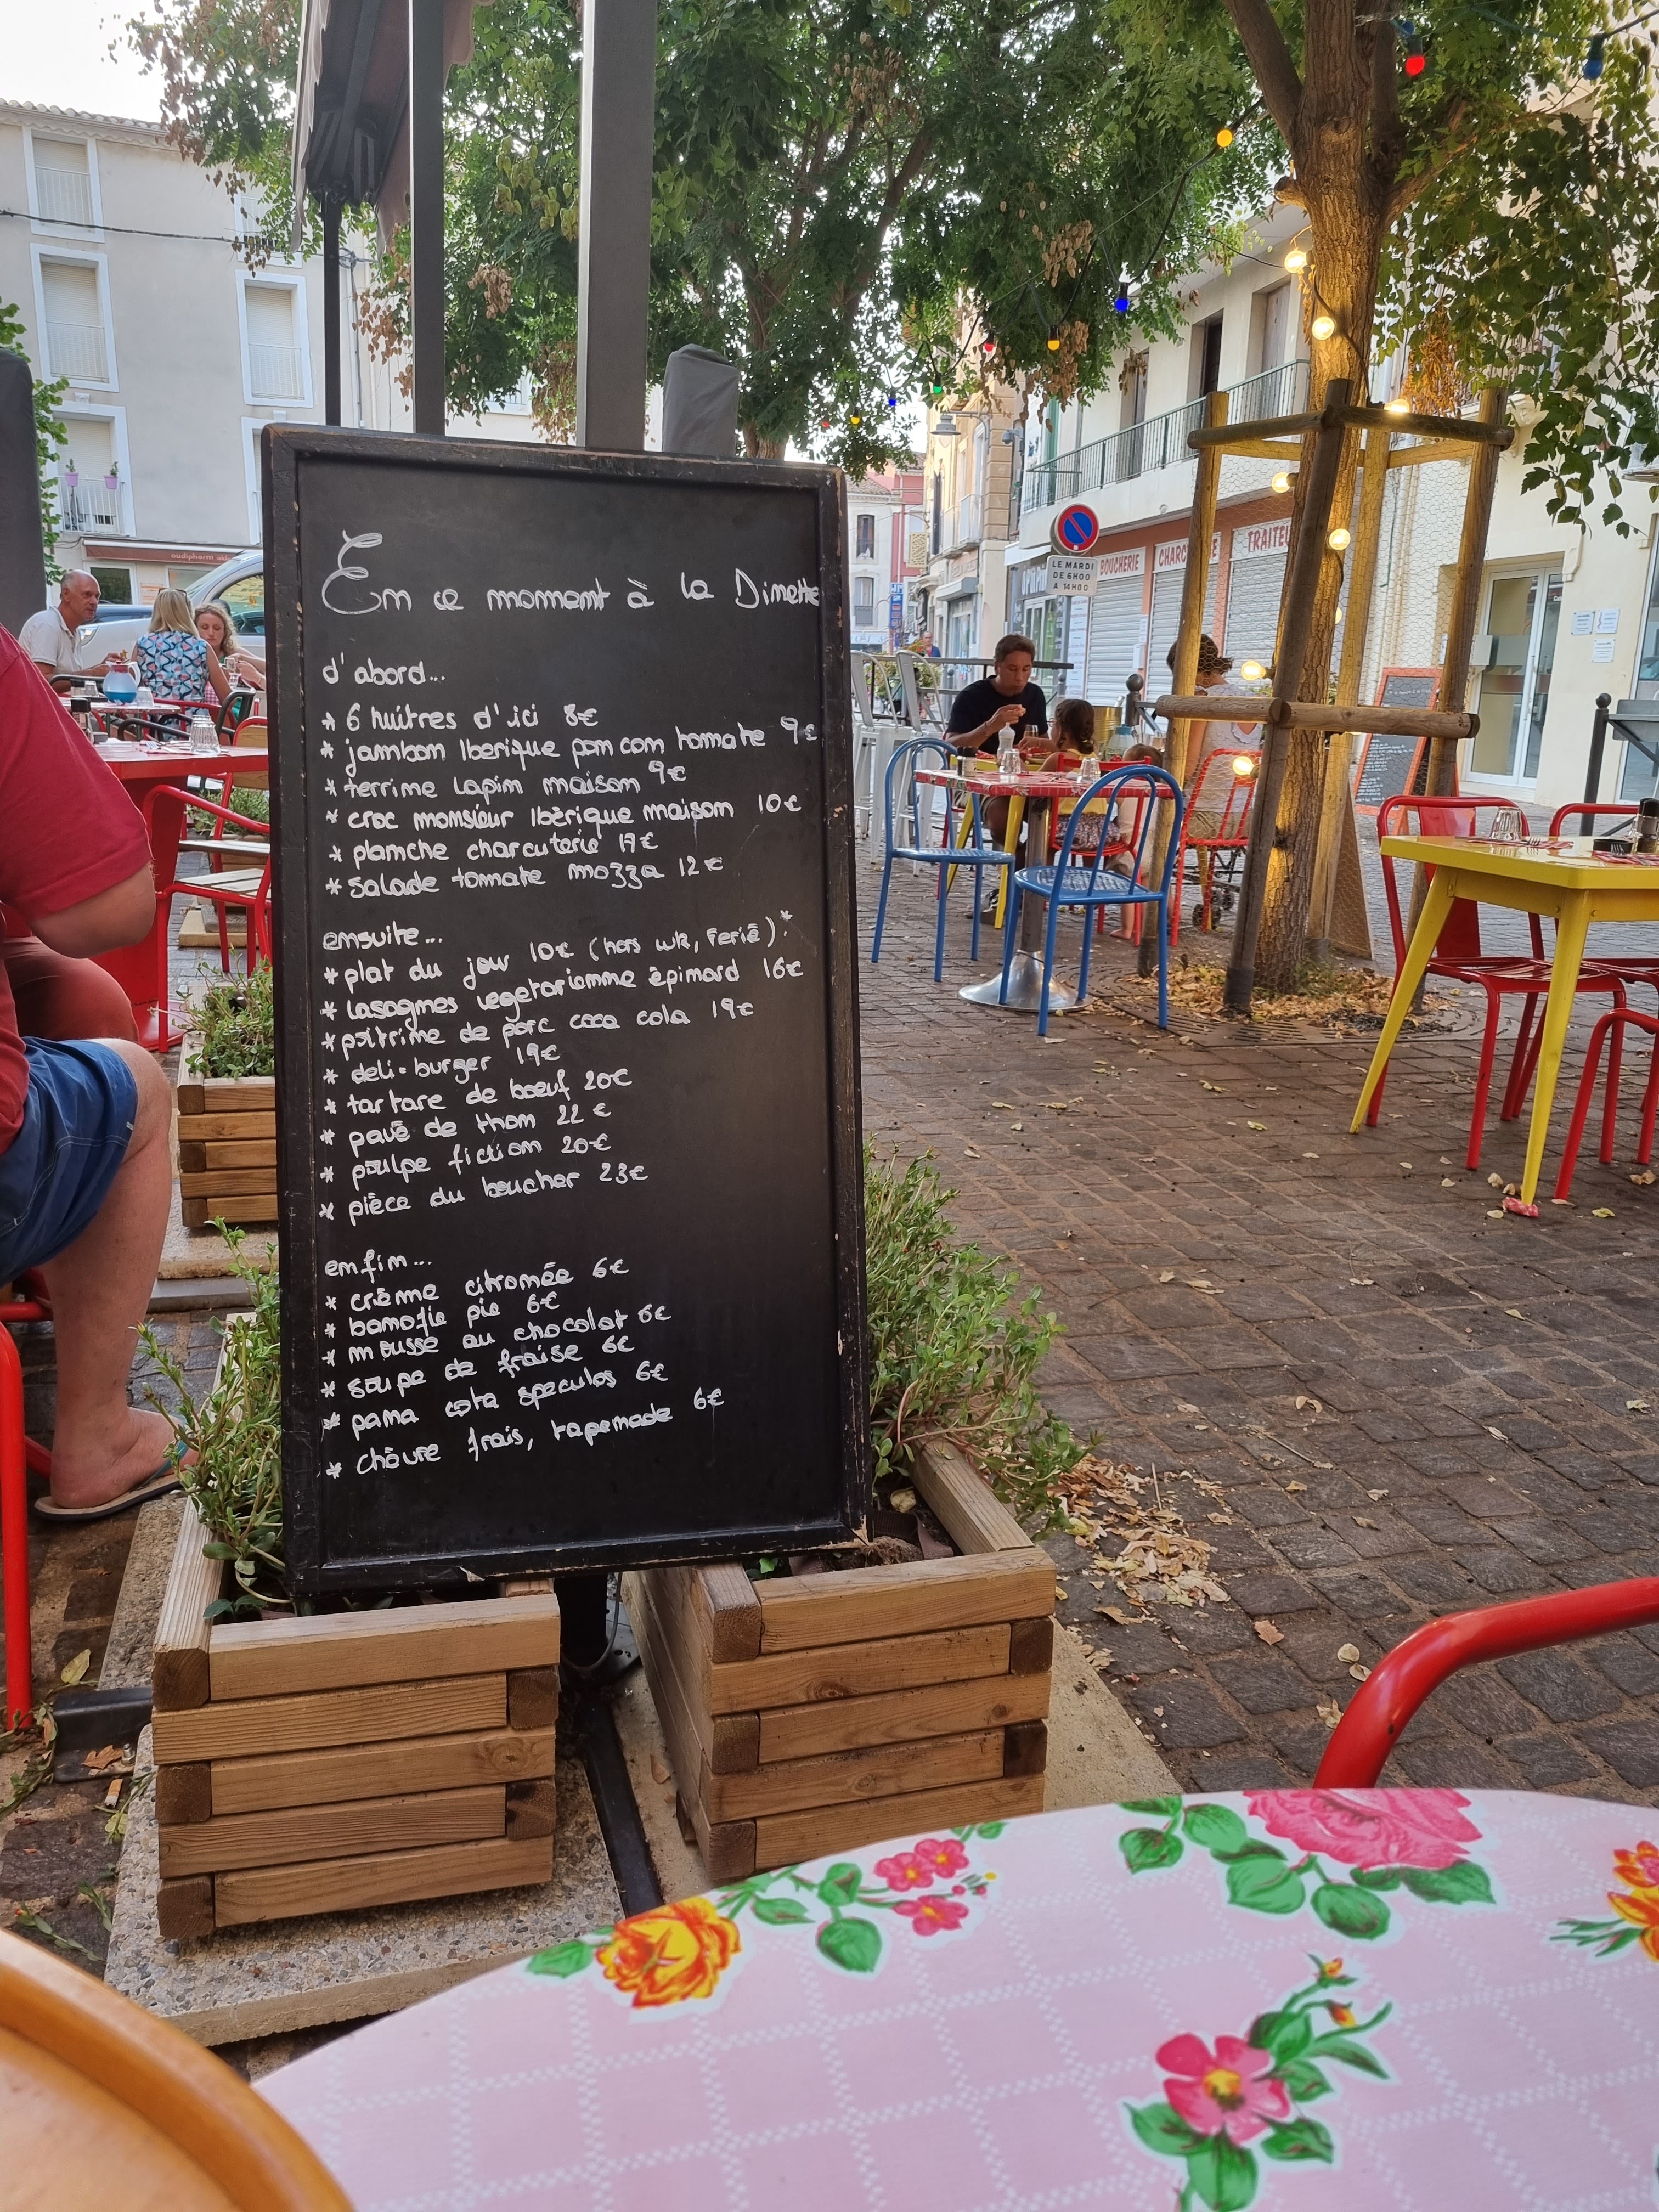 En ce moment à la Dinette
d'abord...
* 6 huîtres d'ici 8€
* jambon Iberique pan con tomate 9€
* terrine lapin maison 9€
* croc monsieur Ibèrique maison 10€
* planche charcuterie 17€
* salade tomate mozza 12€
ensuite...
* plat du jour 10€ (hors wk, Ferié)*
* lasagnes vegetarienne épinard 16€
* poitrine de porc coca cola 19€
* deli-burger 19€
* tartare de boeuf 20€
* pavé de thon 22€
* poulpe fiction 20€
* pièce du boucher 23€
enfin...
* crème citronnée 6€
* banofie pie 6€
* mousse au chocolat 6€
* soupe de fraise 6€
* pana cota speculos 6€
* chèvre frais, tapenade 6€
LE MARDI
DE 6H00
A 14H00
BOUCHERIE
TRAITEU